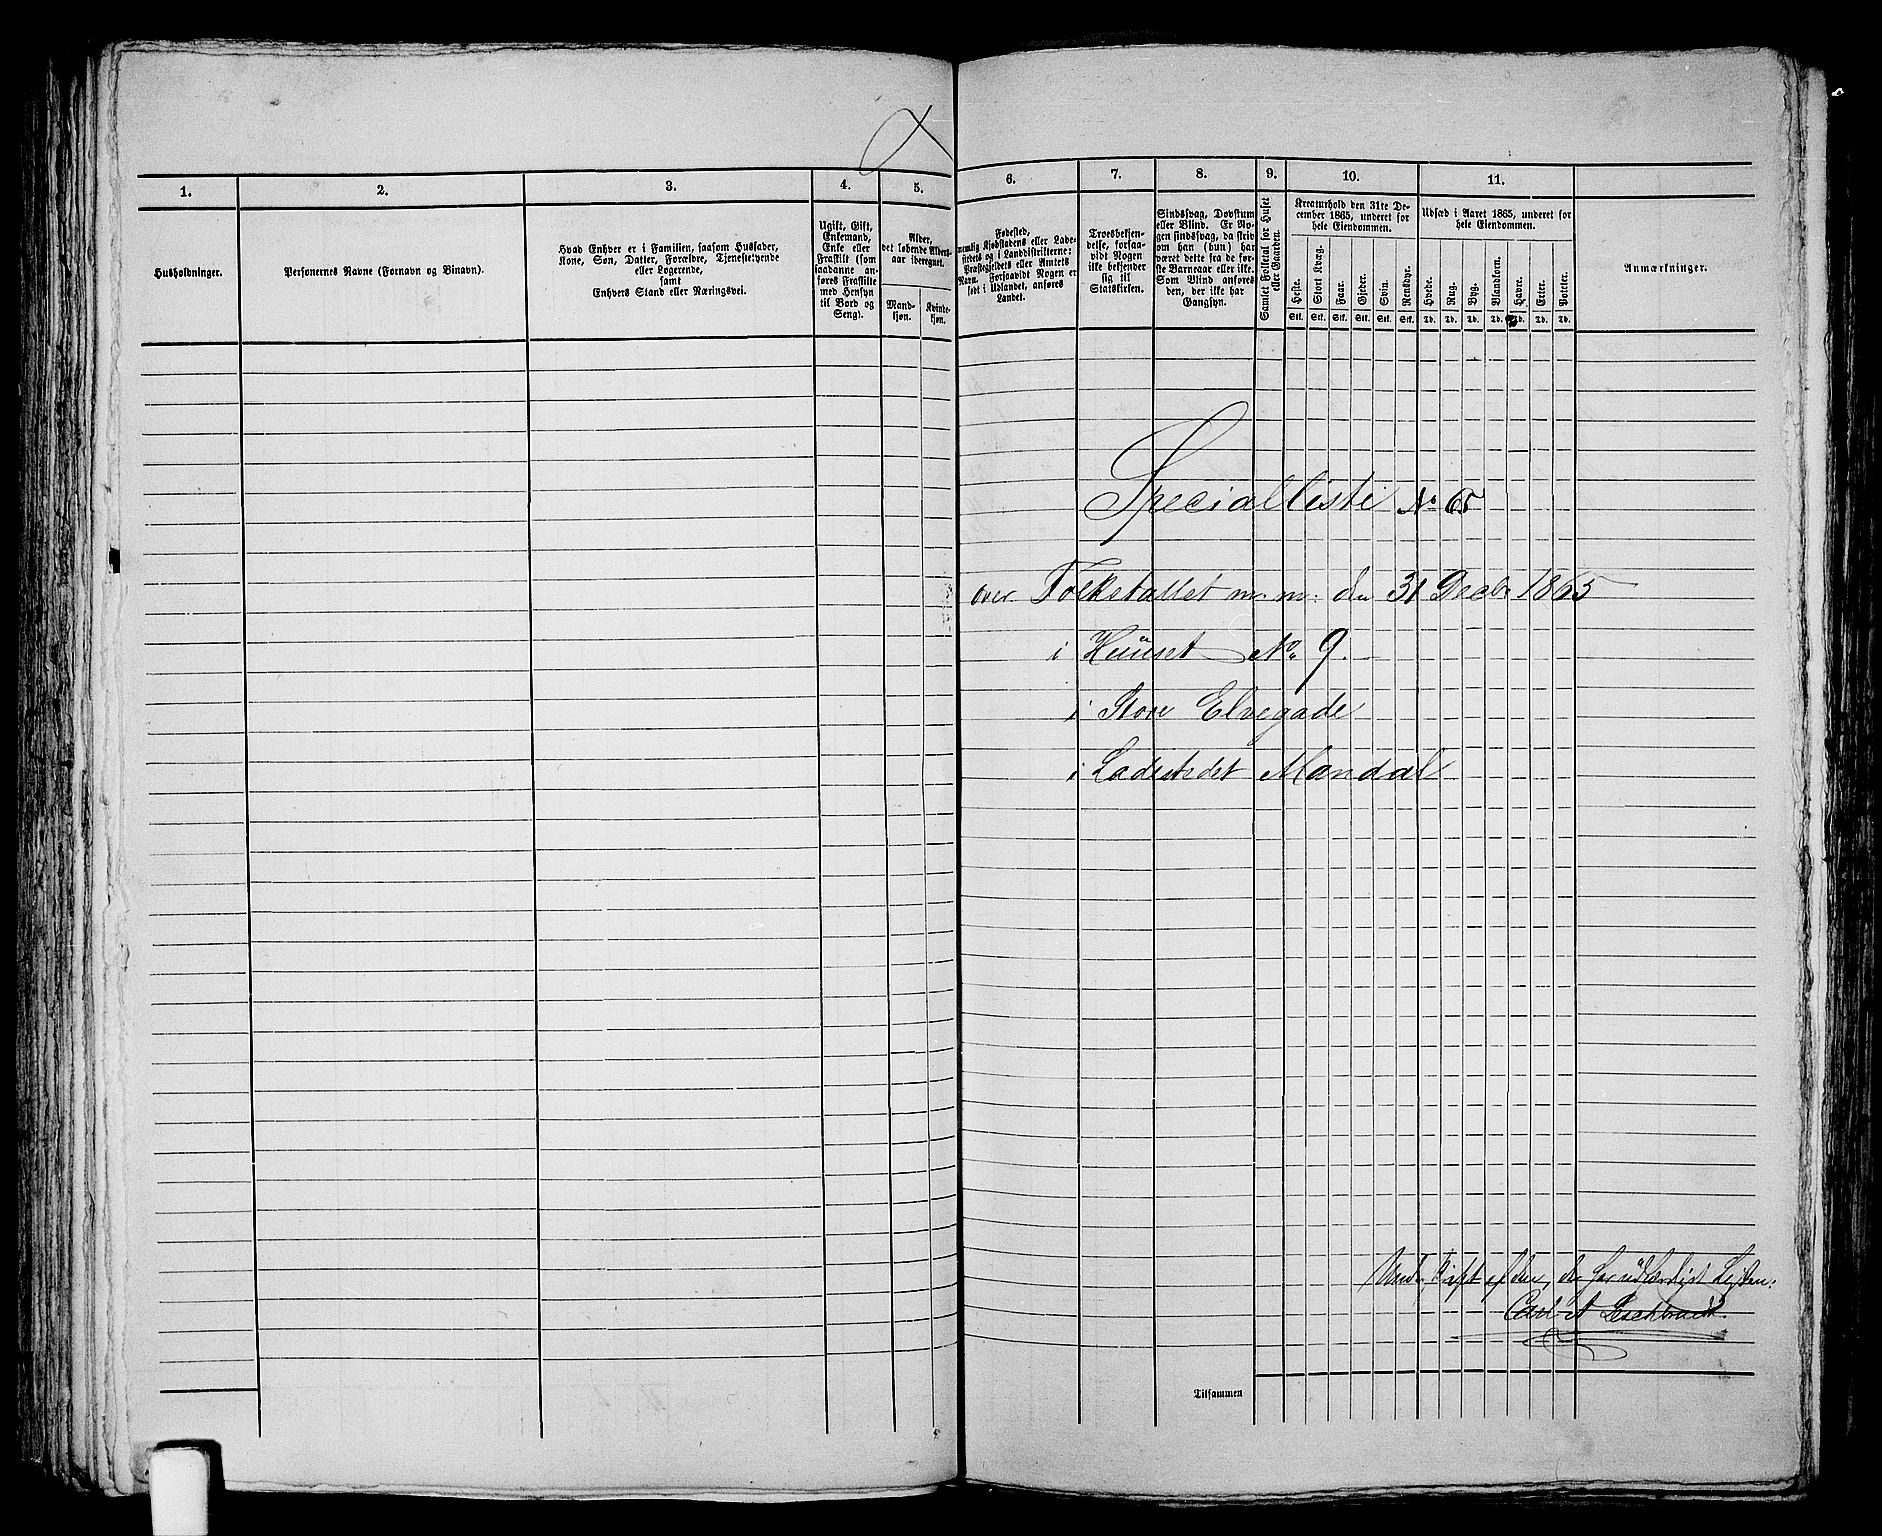 1.
2.
3.
4.
5.
Husholdninger.
Personernes Navne (Fornavn og Binavn).
Hvad Enhver er i Familien, saasom Husfader,
Kone, Søn, Datter, Forældre, Tjenestetyende
eller Logerende,
samt
Enhvers Stand eller Næringsvei.
Ugift, Gift,
Enkemand,
Enke eller
Fraskilt (som
saadanne an-
føres Fraskilte
med Hensyn
til Bord og
Seng).
Alder,
det løbende Alders-
aar iberegnet.
Mand-
kjøn.
Kvinde-
kjøn.
6.
7.
8.
9.
10.
11.
Fødested,
nemlig Kjøbstadens eller Lade-
stedets og i Landdistrikterne:
Præstegjeldets eller Amtets
Navn. Forsaavidt Nogen er
født i Udlandet, anføres
Landet.
Troesbekjen-
delse, forsaa-
vidt Nogen
ikke bekjender
sig til
Statskirken.
Sindssvag, Døvstum
eller Blind. Er No-
gen sindssvag, da skriv
om han (hun) har
været dette fra de før-
ste Barneaar eller ikke.
Som Blind anføres
den, der ikke har
Gangsyn.
Samlet Folketal for Huset
eller Gaarden.
Kreaturhold den 31te De-
cember 1865, underet for
hele Eiendommen.
Heste.
Stort Kvæg.
Faar.
Gjeder.
Svin.
Rensdyr.
Stk. Stk. Stk. Stk. Stk. Stk.
Udsæd i Aaret 1865, underet for
hele Eiendommen.
Hvede.
Rug.
Byg.
Blandkorn.
Havre.
Erter.
Poteter.
Td. Td. Td. Td. Td. Td. Td.
Anmærkninger.
Specialliste No 65
over Folketallet m. m. den 31 Decbr 1865
i Huuset No. 9.
i Store Elvegade
i Ladestedet Mandal
Underskrift af den, der har udfærdiget Listen:
Carl A
Tilsammen